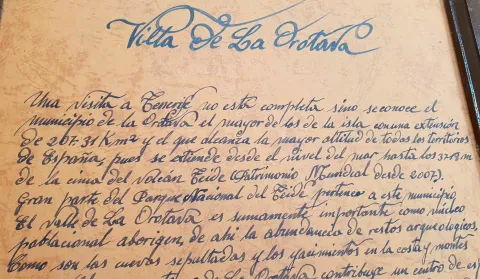 Villa de La Orotava
Una visita a Tenerife no está completa sino se conoce el
municipio de la Orotava el mayor de los de la isla con una extensión
de 207.31 Km² y el que alcanza la mayor altitud de todos los territorios
de España, pues se extiende desde el nivel del mar hasta los 3.718 m
de la cima del volcán Teide (Patrimonio Mundial desde 2007).
Gran parte del Parque Nacional del Teide pertenece a este municipio
El valle de La Orotava es sumamente importante como núcleo
poblacional aborigen, de ahí la abundancia de restos arqueológicos,
como son las cuevas sepultadas y los yacimientos en la costa y montes
de La Orotava contribuye un centro de es